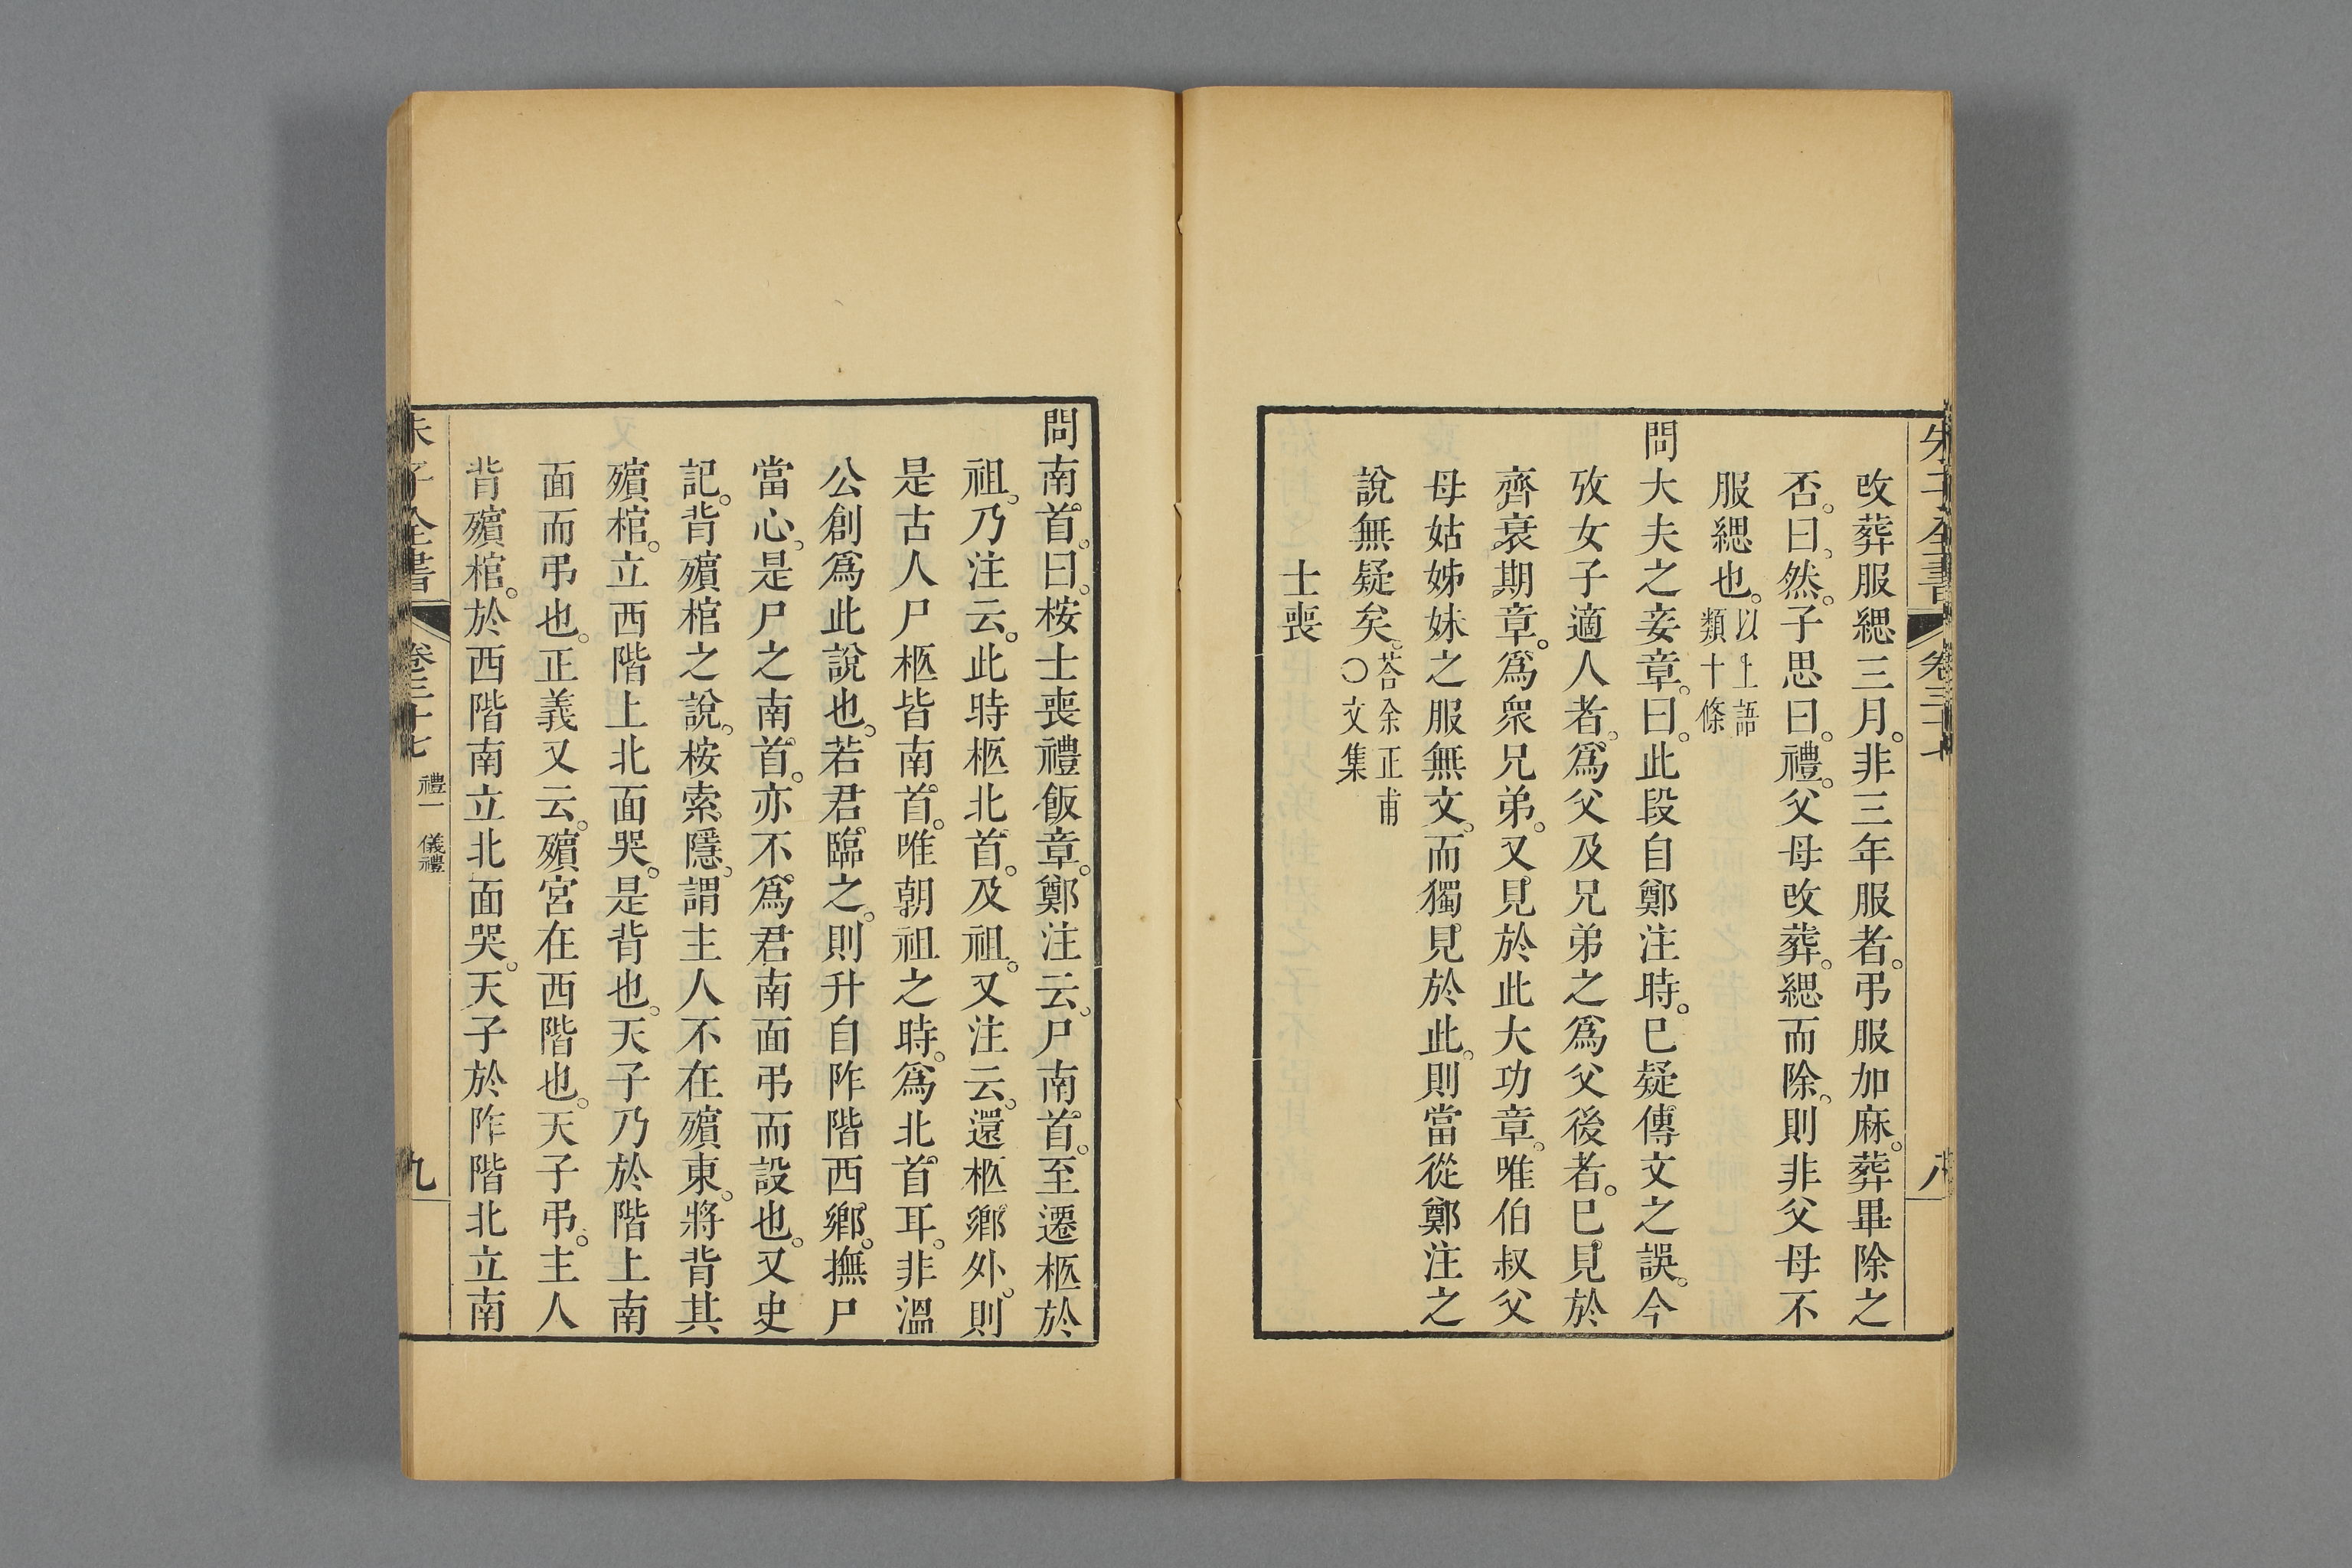 朱子全書 卷三十七 八
改葬服緦三月。非三年服者。弔服加麻。葬畢除之
否。曰。然。子思曰。禮。父母改葬。緦而除。則非父母不
服緦也。以上語類十條
問大夫之妾章。曰。此段自鄭注時。已疑傳文之誤。今
攷女子適人者。爲父及兄弟之爲父後者。已見於
齊衰期章。爲衆兄弟。又見於此大功章。唯伯叔父
母姑姊妹之服無文。而獨見於此。則當從鄭注之
說無疑矣。荅余正甫○文集
士喪
問南首。曰。桉士喪禮飯章。鄭注云。尸南首。至遷柩於
祖。乃注云。此時柩北首。及祖。又注云。還柩鄉外。則
是古人尸柩皆南首。唯朝祖之時。爲北首耳。非溫
公創爲此說也。若君臨之。則升自阼階西鄉。撫尸
當心。是尸之南首。亦不爲君南面弔而設也。又史
記。背殯棺之說。桉索隱。謂主人不在殯東。將背其
殯棺。立西階上北面哭。是背也。天子乃於階上南
面而弔也。正義又云。殯宮在西階也。天子弔。主人
背殯棺。於西階南立北面哭。天子於阼階北立南
朱子全書 卷三十七 禮一 儀禮 九